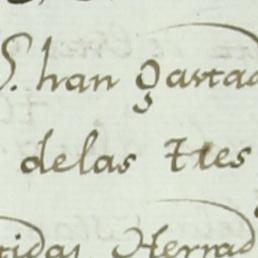 S. han gastad
delas tres
tidas Herrad